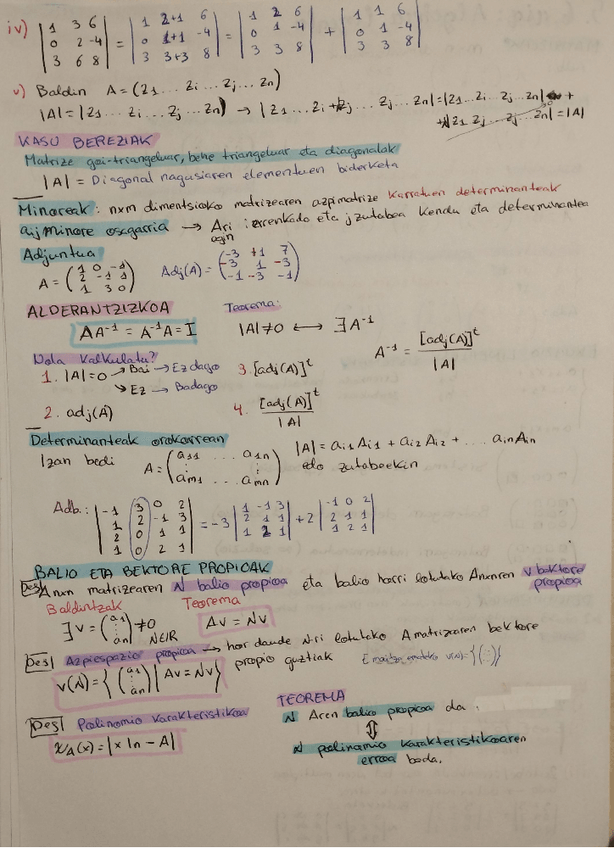 iv) | 1 3 6 ; 0 2 -4 ; 3 6 8 | = | 1 2+1 6 ; 0 1+1 -4 ; 3 3+3 8 | = | 1 2 6 ; 0 1 -4 ; 3 3 8 | + | 1 1 6 ; 0 1 -4 ; 3 3 8 |
v) Baldin A = (z1 ... zi ... zj ... zn)
|A| = |z1 ... zi ... zj ... zn| → |z1 ... zi + zj ... zj ... zn| = |z1 ... zi ... zj ... zn| +
|z1 zj ... zj ... zn| = |A|
KASU BEREZIAK
Matrize goi-triangeluar, behe triangeluar eta diagonalak
|A| = Diagonal nagusiaren elementuen biderketa
Minoreak: nxm dimentsioko matrizearen azpimatrize karratuen determinanteak
aij minore osagarria → Ari i errenkada eta j zutabea kendu eta determinantea
egin
Adjuntua
A = ( 1 0 -1 ; 2 -1 1 ; 1 3 0 ) Adj(A) = ( -3 +1 7 ; -3 1 -3 ; -1 -3 -1 )
ALDERANTZIZKOA Teorema:
AA⁻¹ = A⁻¹A = I |A| ≠ 0 ⟷ ∃A⁻¹ A⁻¹ = [adj(A)]ᵗ / |A|
Nola kalkulatu?
1. |A| = 0 → Bai → Ez dago 3. [adj(A)]ᵗ
↘ Ez → Badago
2. adj(A) 4. [adj(A)]ᵗ / |A|
Determinanteak orokorrean
Izan bedi A = ( a11 ... a1n ; ⋮ ⋮ ; am1 ... amn ) |A| = ai1 Ai1 + ai2 Ai2 + ... ain Ain
edo zutabeekin
Adb.: | -1 3 0 2 ; 1 2 -1 3 ; 2 0 1 1 ; 1 0 2 1 | = -3 | 1 -1 3 ; 2 1 1 ; 1 2 1 | + 2 | -1 0 2 ; 2 1 1 ; 1 2 1 |
BALIO ETA BEKTORE PROPIOAK
Def Anxn matrizearen λ balio propioa eta balio horri lotutako Anxnren v bektore
propioa
Baldintzak Teorema
∃v = ( a1 ; ⋮ ; an ) ≠ 0 Av = λv
Def Azpiespazio propioa → hor daude λ-ri lotutako A matrizearen bektore
propio guztiak
V(λ) = { ( a1 ; ⋮ ; an ) | Av = λv }
Def Polinomio karakteristikoa
χA(x) = |x In - A|
TEOREMA
λ Aren balio propioa da
⇕
λ polinomio karakteristikoaren
erroa bada.